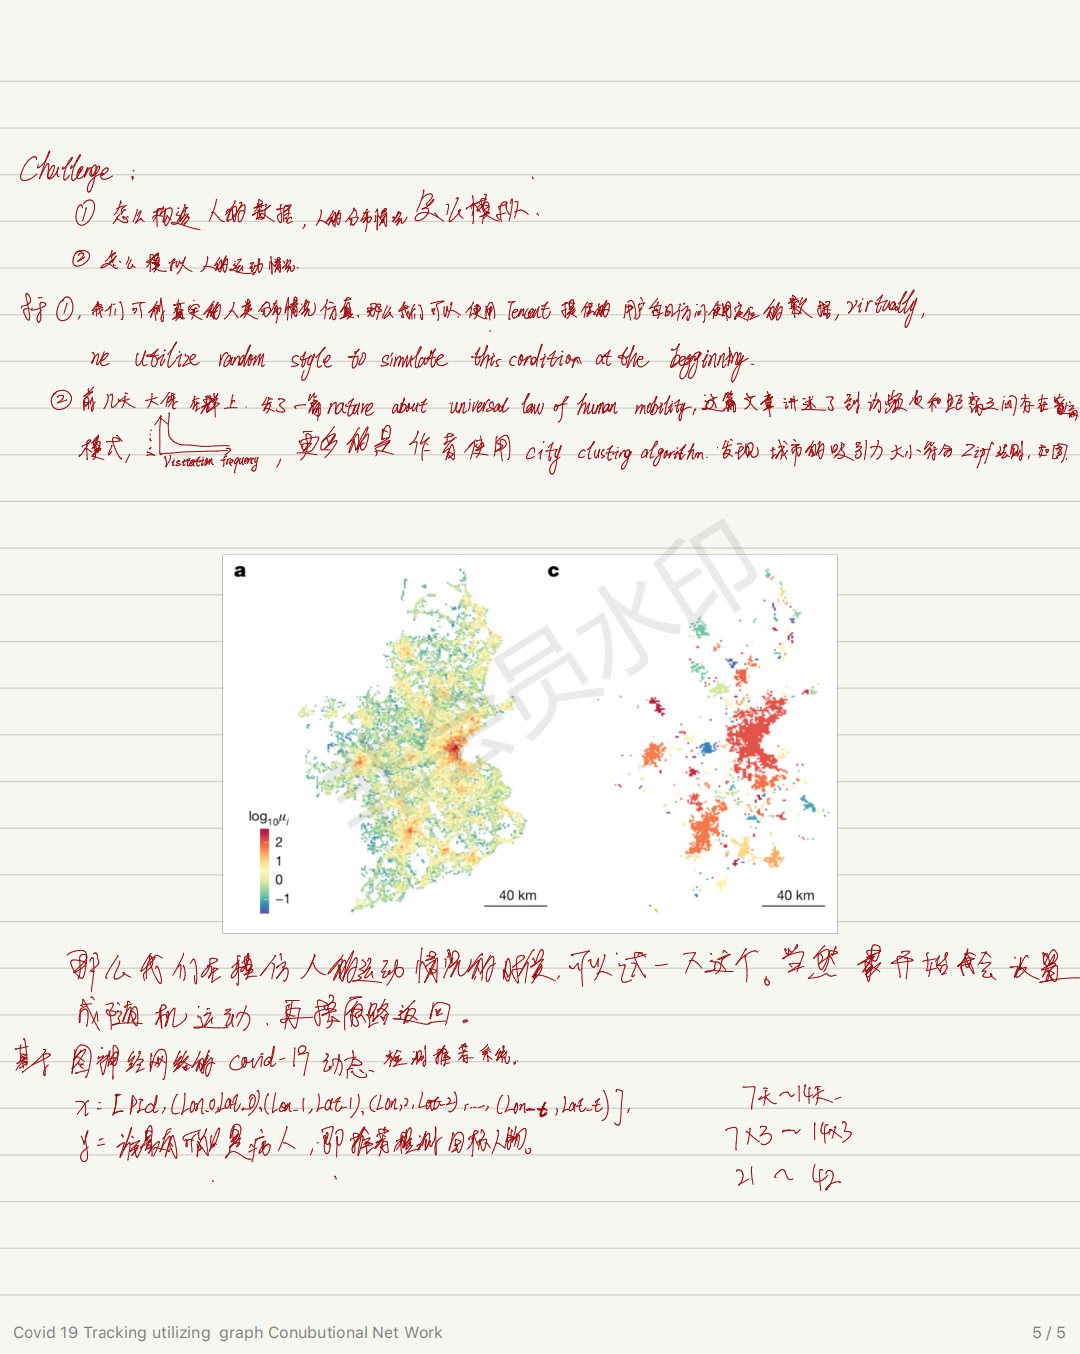 Challenge:
① 怎么构造人的数据，人的分布情况怎么模拟、
② 怎么模拟人的运动情况.
对于①，我们可利真实的人类分布情况仿真. 那么我们可以使用Tencent提供的用户每日访问的数据, virtually,
we utilize random style to simulate this condition at the begginning.
② 前几天大佬在群上. 发了一篇nature about universal law of human mobility, 这篇文章讲述了到访频次和距离之间存在
模式,
Visitation frequency
, 更多的是作者使用city clusting algorithm. 发现城市的吸引力大小符合Zipf法则, 如图.
a
c
log10μi
2
1
0
−1
40 km
40 km
会员水印
那么我们在模仿人的运动情况的时候, 可以试一下这个。当然最开始会设置
成随机运动. 再按原路返回。
基于图神经网络的covid-19动态、检测推荐系统.
x = [PId, (Lon_0, Lat_0), (Lon_1, Lat_1), (Lon_2, Lat_2), ...., (Lon_t, Lat_t)],
y = 谁最有可能是病人, 即推荐检测目标人物。
7天~14天
7×3 ~ 14×3
21 ~ 42
Covid 19 Tracking utilizing graph Conubutional Net Work
5 / 5